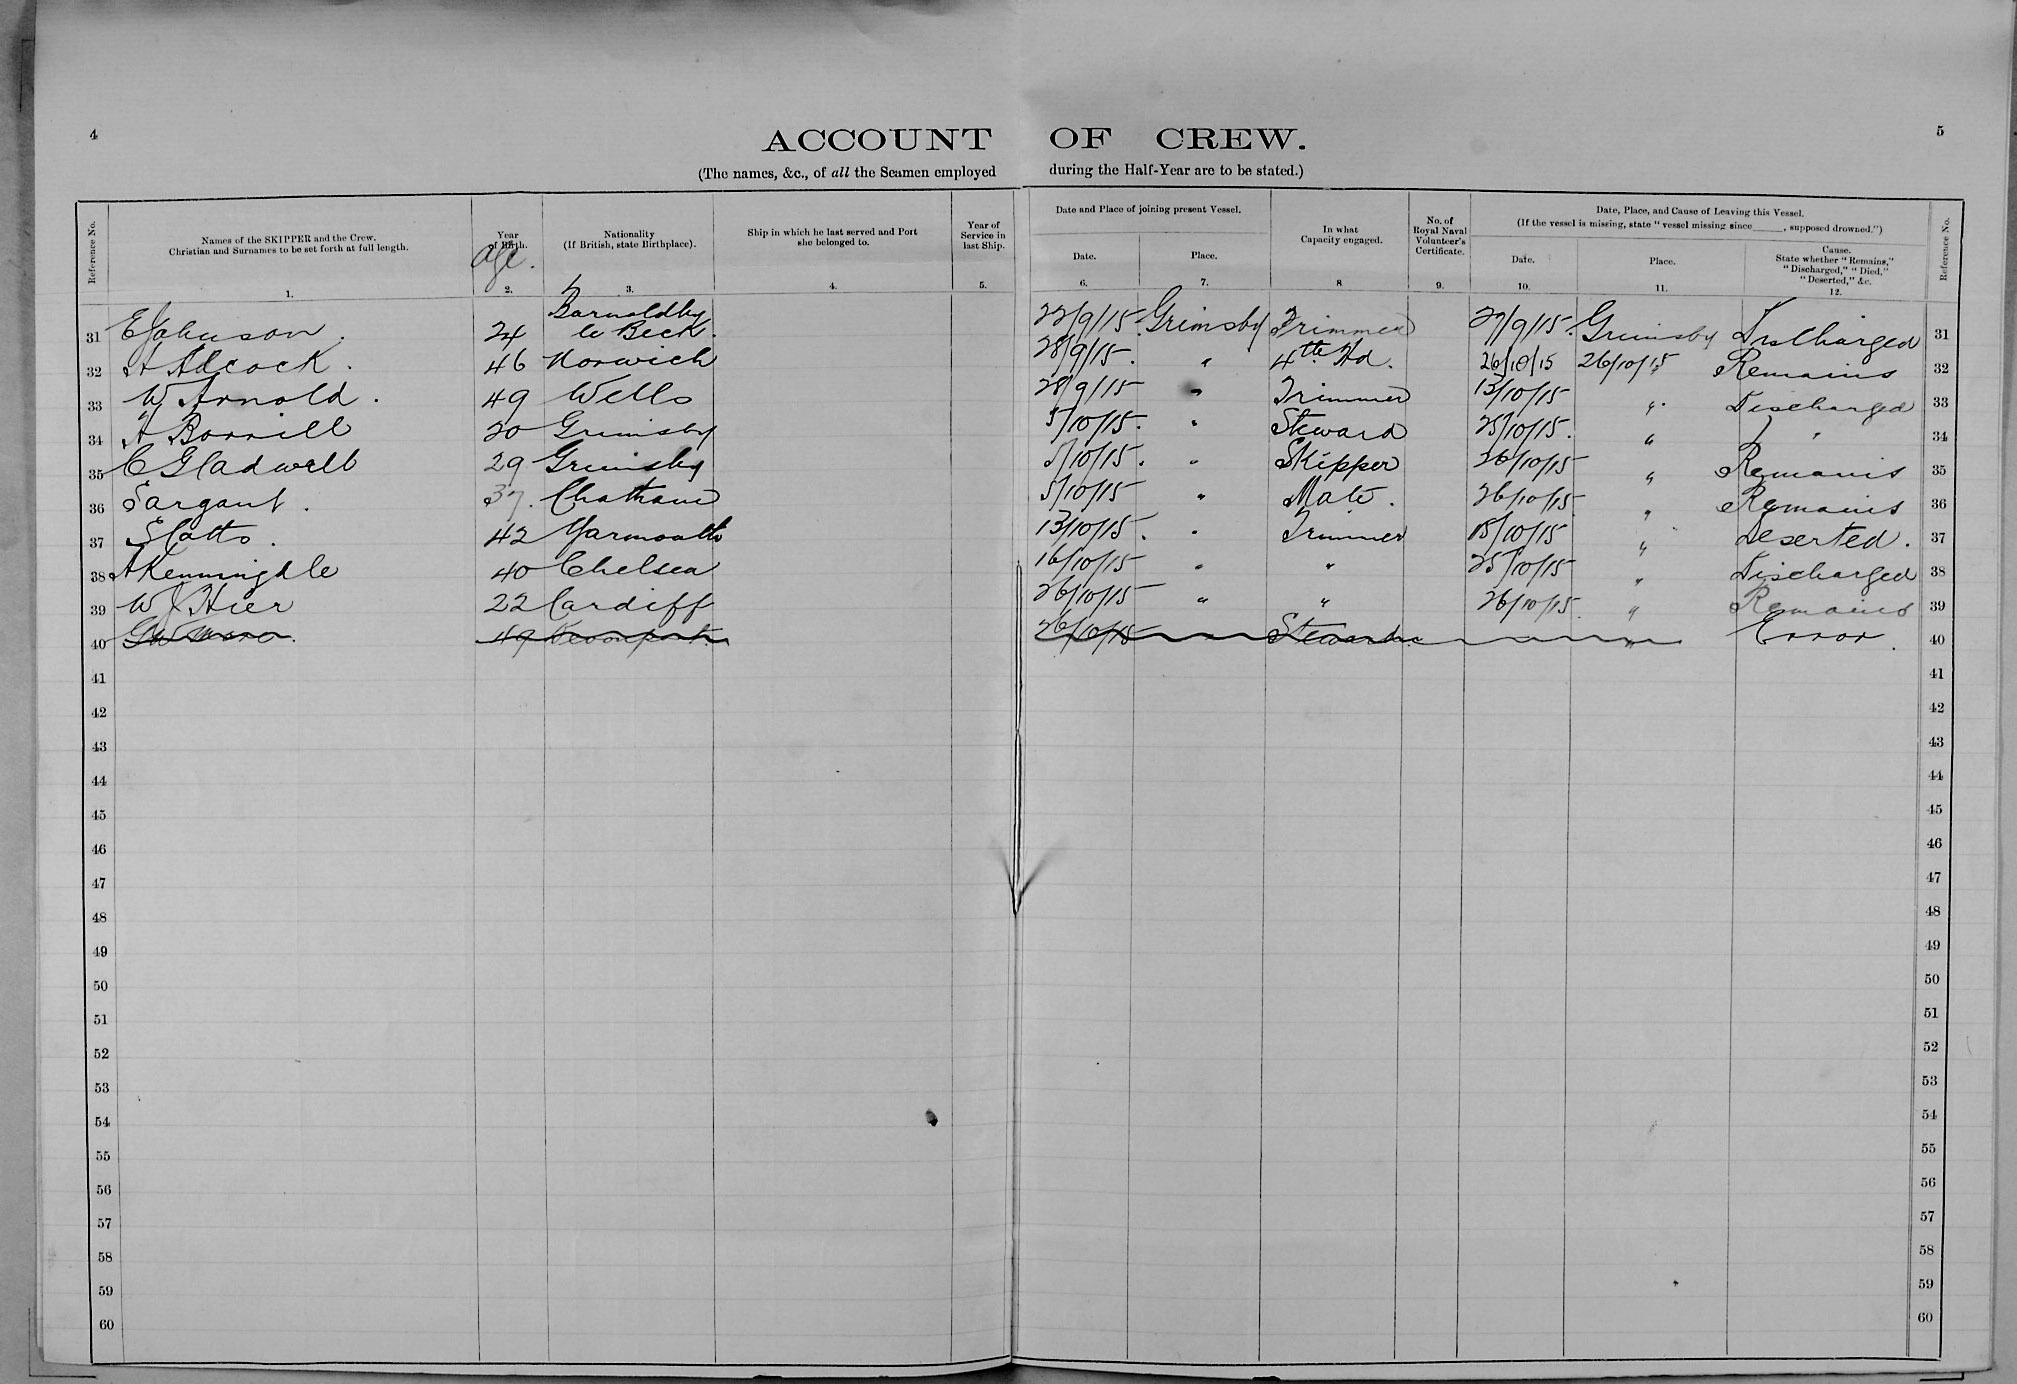 4
5
ACCOUNT OF CREW.
(The names, &c., of all the Seamen employed during the Half-Year are to be stated.)
Reference No.
Names of the SKIPPER and the Crew.
Christian and Surnames to be set forth at full length.
1.
Year
of Birth.
age.
2.
Nationality
(If British, state Birthplace).
3.
Ship in which he last served and Port
she belonged to.
4.
Year of
Service in
last Ship.
5.
Date and Place of joining present Vessel.
Date.
6.
Place.
7.
In what
Capacity engaged.
8
No. of
Royal Naval
Volunteer's
Certificate.
9.
Date, Place, and Cause of Leaving this Vessel.
(If the vessel is missing, state "vessel missing since , supposed drowned.")
Date.
10.
Place.
11.
Cause.
State whether "Remains,"
"Discharged," "Died,"
"Deserted," &c.
12.
Reference No.
31 E Johnson. 24 Barnoldby le Beck. 22/9/15. Grimsby Trimmer 27/9/15. Grimsby Discharged 31
32 A Adcock. 46 Norwich 28/9/15. " 4th Hd. 26/10/15 26/10/15 " Remains 32
33 W Arnold. 49 Wells 28/9/15 " Trimmer 13/10/15 " Discharged 33
34 A Borrill 20 Grimsby 5/10/15. " Steward 25/10/15. " " 34
35 C Gladwell 29 Grimsby 5/10/15. " Skipper 26/10/15 " Remains 35
36 Sargant. 37. Chatham 5/10/15 " Mate. 26/10/15 " Remains 36
37 Slatts. 42 Yarmouth 13/10/15. " Trimmer 15/10/15 " Deserted. 37
38 A Kenningale 40 Chelsea 16/10/15 " " 25/10/15 " Discharged 38
39 W J Hier 22 Cardiff 26/10/15 " " 26/10/15. " Remains 39
40 49 Devonport. 26/10/15 Steward " Error. 40
41 41
42 42
43 43
44 44
45 45
46 46
47 47
48 48
49 49
50 50
51 51
52 52
53 53
54 54
55 55
56 56
57 57
58 58
59 59
60 60